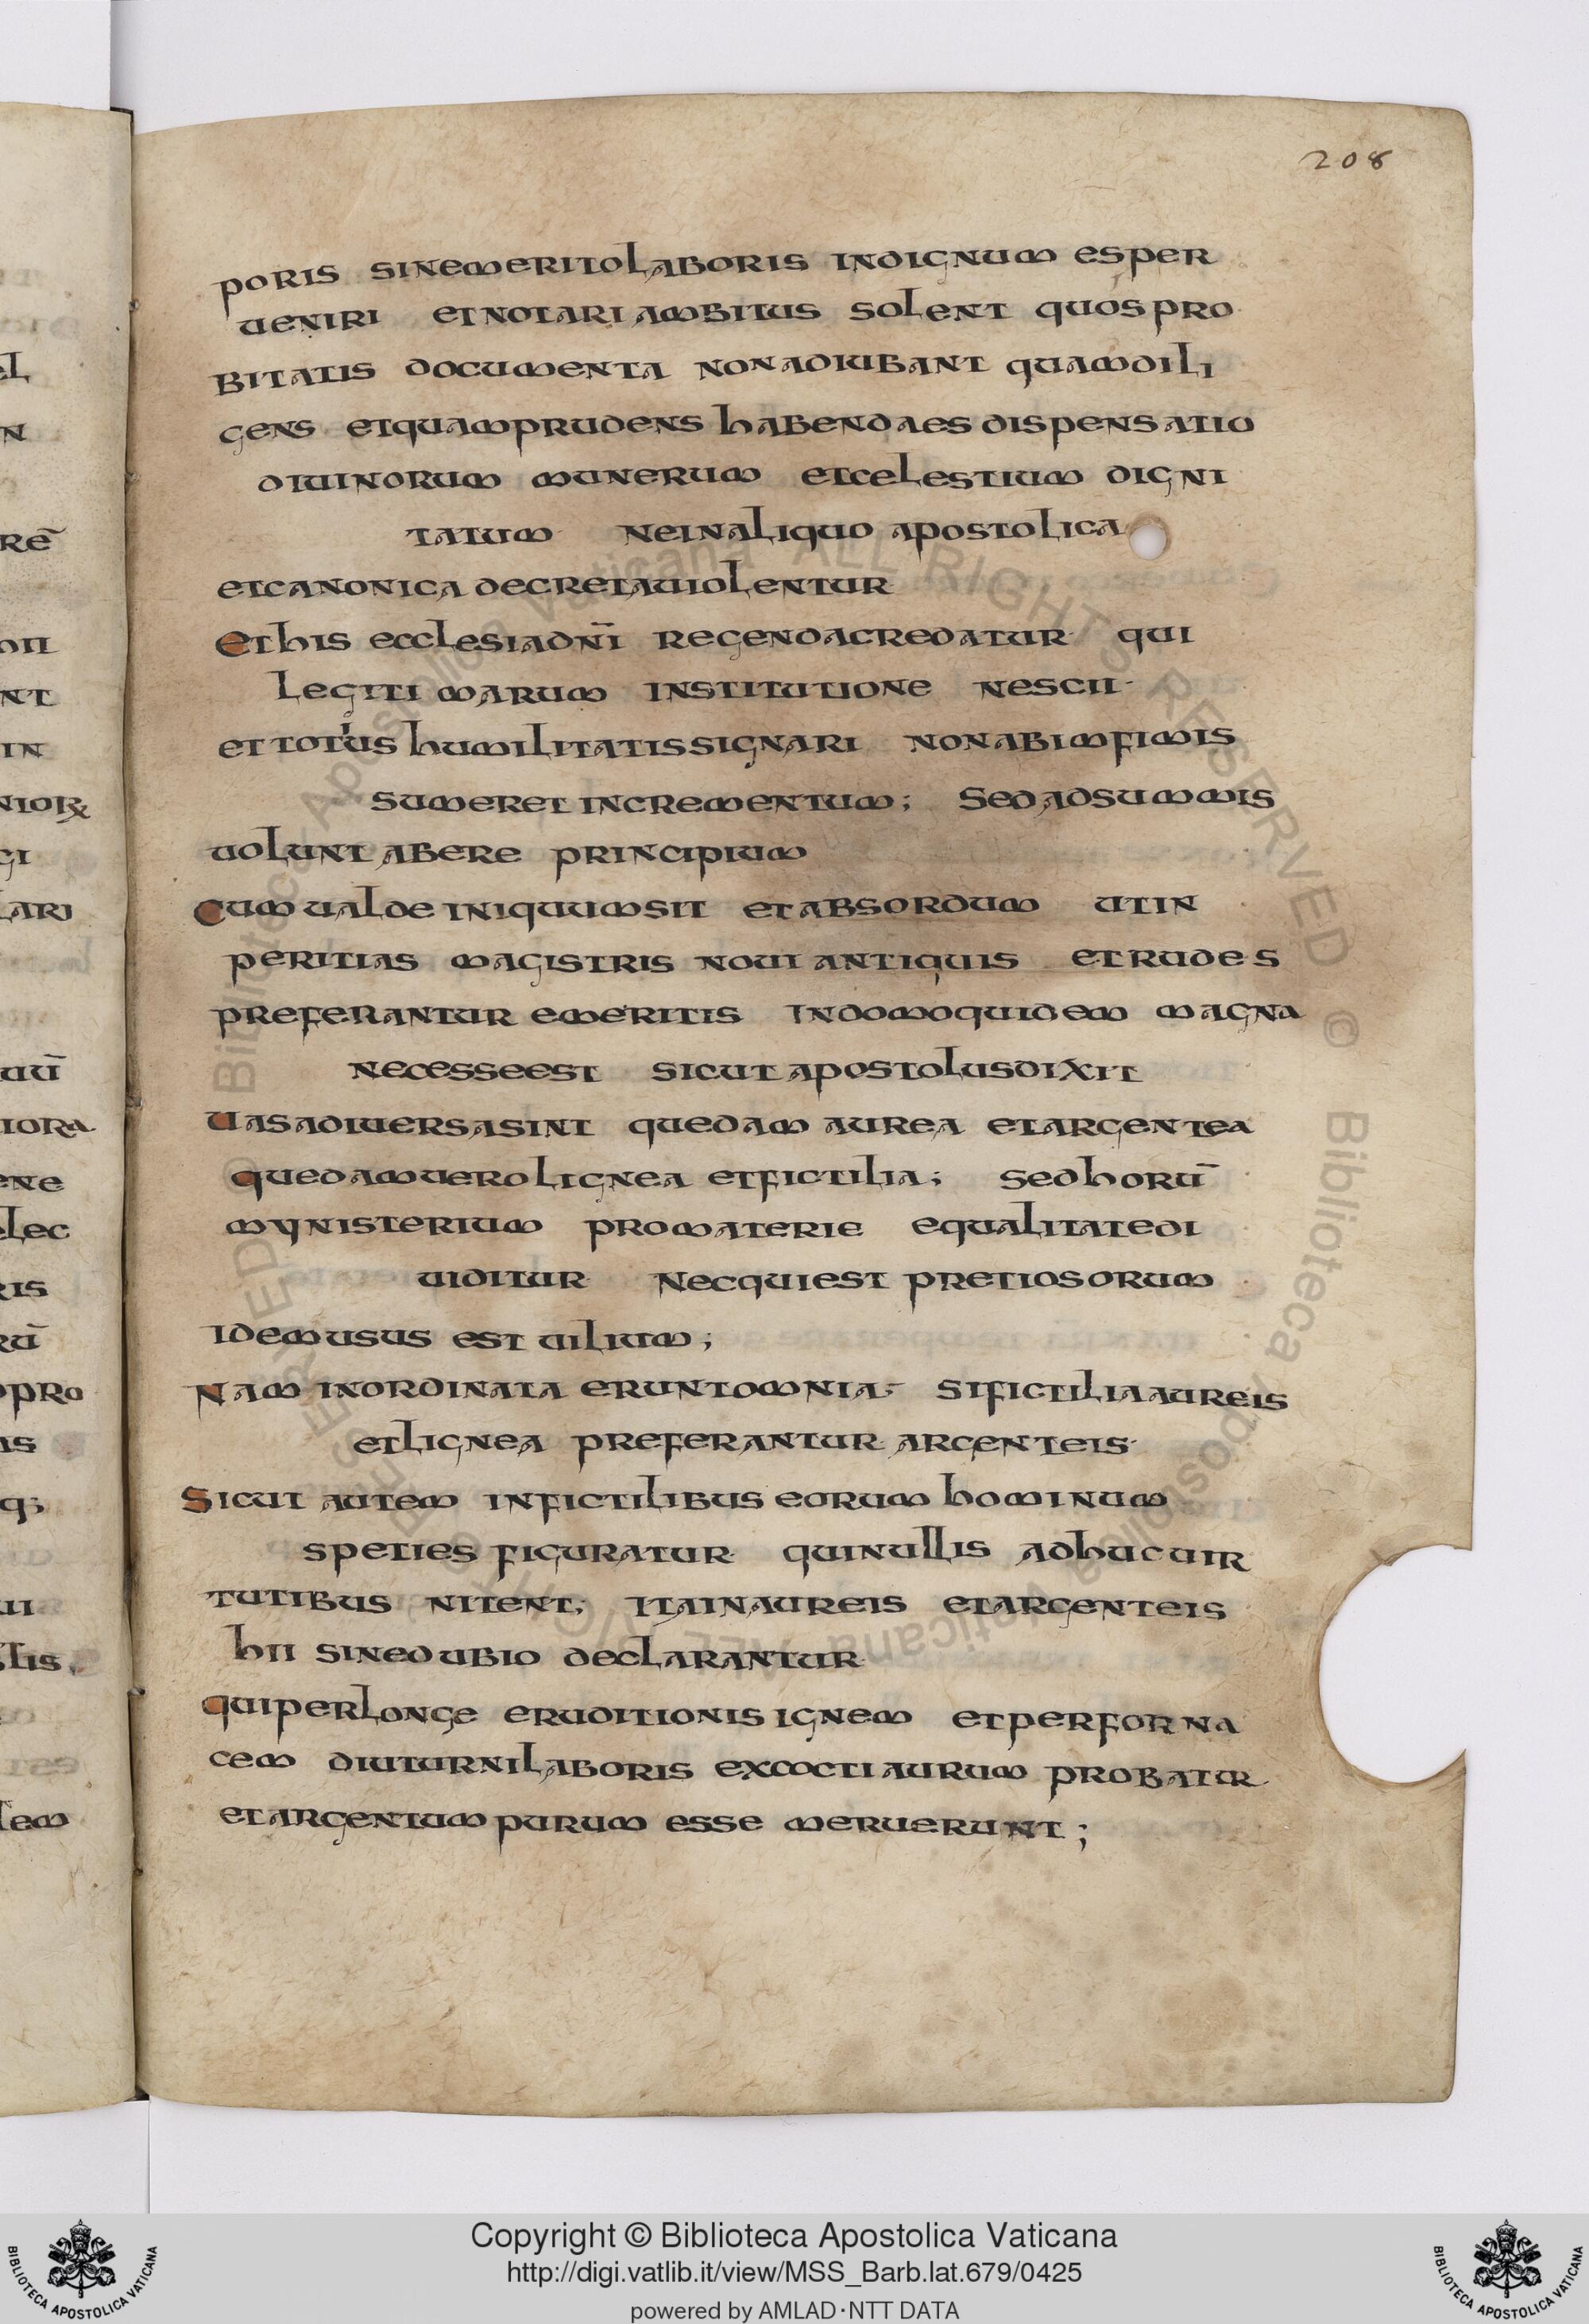 208
poris sinemeritolaboris indignum esper
ueniri etnotari ambitus solent quospro
bitatis documenta nonadiubant quamdili
gens etquamprudens habendaes dispensatio
diuinorum munerum etcelestium digni
tatum neinaliquo apostolica
etcanonica decretauiolentur
ethis ecclesiadn̄i regendacredatur qui
legiti marum institutione nescii
et totius humilitatissignari nonabimfimis
sumeret incrementum; sedadsummis
uolunt abere principium
cum ualde iniquumsit et absordum utin
peritias magistris noui antiquis etrudes
preferantur emeritis indomoquidem magna
necesseest sicut apostolusdixit
uasadiuersasint quedam aurea etargentea
quedamuerolignea etfictilia; sedhorū
mynisterium promaterie equalitatedi
uiditur necquiest pretiosorum
idemusus est uilium;
nam inordinata eruntomnia; sifictiliaaureis
etlignea preferantur argenteis
sicut autem infictilibus eorum hominum
speties figuratur quinullis adhucuir
tutibus nitent; itainaureis etargenteis
hii sinedubio declarantur
quiperlonge eruditionis ignem etperforna
cem diuturnilaboris excocti aurum probatur
etargentumpurum esse meruerunt;
el
n
rē
on
nt
in
niorꝝ
gi
lari
uū
iora
ene
elec
ris
rū
opro
is
q;
ui
lis
lem
Copyright © Biblioteca Apostolica Vaticana
http://digi.vatlib.it/view/MSS_Barb.lat.679/0425
powered by AMLAD·NTT DATA
BIBLIOTECA APOSTOLICA VATICANA
BIBLIOTECA APOSTOLICA VATICANA
Biblioteca Apostolica Vaticana ALL RIGHTS RESERVED © Biblioteca Apostolica Vaticana ALL RIGHTS RESERVED ©